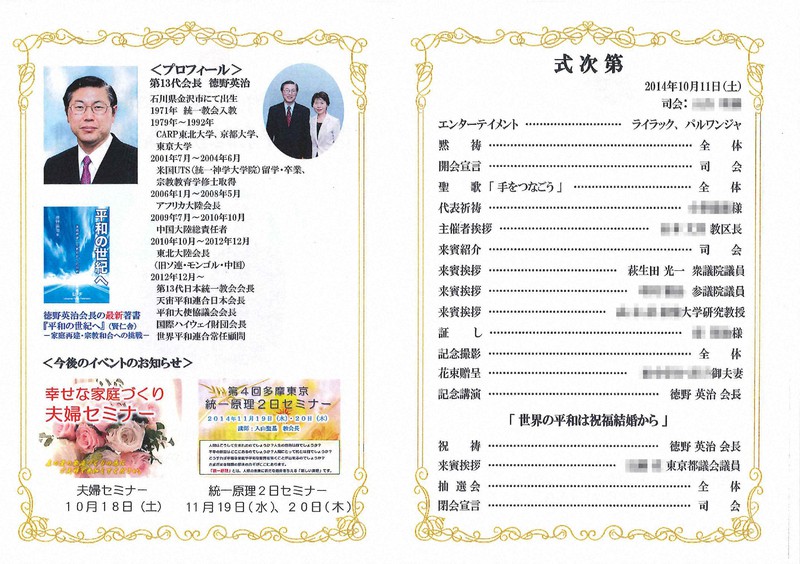 ＜プロフィール＞
第13代会長　徳野英治
石川県金沢市にて出生
1971年　統一教会入教
1979年～1992年
CARP東北大学、京都大学、
東京大学
2001年7月～2004年6月
米国UTS(統一神学大学院)留学・卒業、
宗教教育学修士取得
2006年1月～2008年5月
アフリカ大陸会長
2009年7月～2010年10月
中国大陸総責任者
2010年10月～2012年12月
東北大陸会長
(旧ソ連・モンゴル・中国)
2012年12月～
第13代日本統一教会会長
天宙平和連合日本会長
平和大使協議会会長
国際ハイウェイ財団会長
世界平和連合常任顧問
平和の世紀へ
徳野英治会長の最新著書
『平和の世紀へ』(賢仁舎)
－家庭再建・宗教和合への挑戦－
＜今後のイベントのお知らせ＞
幸せな家庭づくり
夫婦セミナー
夫婦セミナー
10月18日（土）
第4回多摩東京
統一原理2日セミナー
2014年11月19日(水)・20日(木)
講師：入山聖基　教会長
統一原理2日セミナー
11月19日(水)、20日(木)
式次第
2014年10月11日(土)
司会：
エンターテイメント ライラック、パルワンジャ
黙祷 全体
開会宣言 司会
聖歌「手をつなごう」 全体
代表祈祷 様
主催者挨拶 教区長
来賓紹介 司会
来賓挨拶 萩生田 光一 衆議院議員
来賓挨拶 参議院議員
来賓挨拶 大学研究教授
証し 様
記念撮影 全体
花束贈呈 御夫妻
記念講演 徳野 英治 会長
「世界の平和は祝福結婚から」
祝祷 徳野 英治 会長
来賓挨拶 東京都議会議員
抽選会 全体
閉会宣言 司会